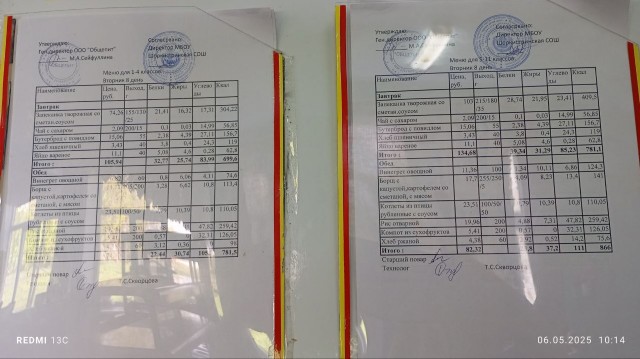 Утверждаю:
Ген.директор ООО "Общепит"
М.А.Сайфуллина
Согласовано:
Директор МБОУ
СОШ
Меню для 1-4 классов
Вторник 8 день
Наименование Цена, руб. Выход, г Белки Жиры Углеводы Ккал
Завтрак
Запеканка творожная со сметан.соусом 74,26 155/110/25 21,41 16,32 17,51 304,22
Чай с сахаром 2,09 200/15 0,1 0,03 14,99 56,85
Бутерброд с повидлом 15,06 55 2,38 4,39 27,11 156,7
Хлеб пшеничный 3,43 40 3,8 0,4 24,3 119
Яйцо вареное 11,1 40 5,08 4,6 0,28 62,8
Итого : 105,94 32,77 25,74 83,99 699,6
Обед
Винегрет овощной 60 0,8 6,06 4,11 74,6
Борщ с капустой,картофелем со сметаной, с мясом 1,28 6,82 10,8 113,4
Котлеты из птицы рубленные с соусом 23,51 100/50 10,39 10,8 110,05
200 47,82 259,42
Компот из сухофруктов 5,41 200 0,57 32,31 126,05
3,12 0,36 98
27,44 30,74 781,5
Технолог
Т.С.Скворцова
Утверждаю:
Ген.директор ООО
М.А.
Согласовано:
Директор МБОУ
СОШ
Меню 5-11 классов
Вторник 8 день
Наименование Цена, руб. Выход, г Белки Жиры Углеводы Ккал
Завтрак
Запеканка творожная со сметан.соусом 103 215/180/35 28,74 21,95 23,41 409,5
Чай с сахаром 2,09 200/15 0,1 0,03 14,99 56,85
Бутерброд с повидлом 15,06 55 2,38 4,39 27,11 156,7
Хлеб пшеничный 3,43 40 3,8 0,4 24,3 119
Яйцо вареное 11,1 40 5,08 4,6 0,28 62,8
Итого : 134,68 31,29 85,23 781,1
Обед
Винегрет овощной 11,36 100 1,34 10,11 6,86 124,3
Борщ с капустой,картофелем со сметаной, с мясом 17,7 255/250/5 8,23 13,4 141
Котлеты из птицы рубленные с соусом 23,51 100/50 10,39 10,8 110,05
Рис отварной 19,96 200 4,88 7,31 47,82 259,42
Компот из сухофруктов 5,41 200 0,57 0 32,31 126,05
Хлеб ржаной 4,38 60 0,52 14,2 75,6
Итого : 82,32 37,2 111 866
Старший повар
Технолог
Т.С.Скворцова
REDMI 13C
06.05.2025 10:14